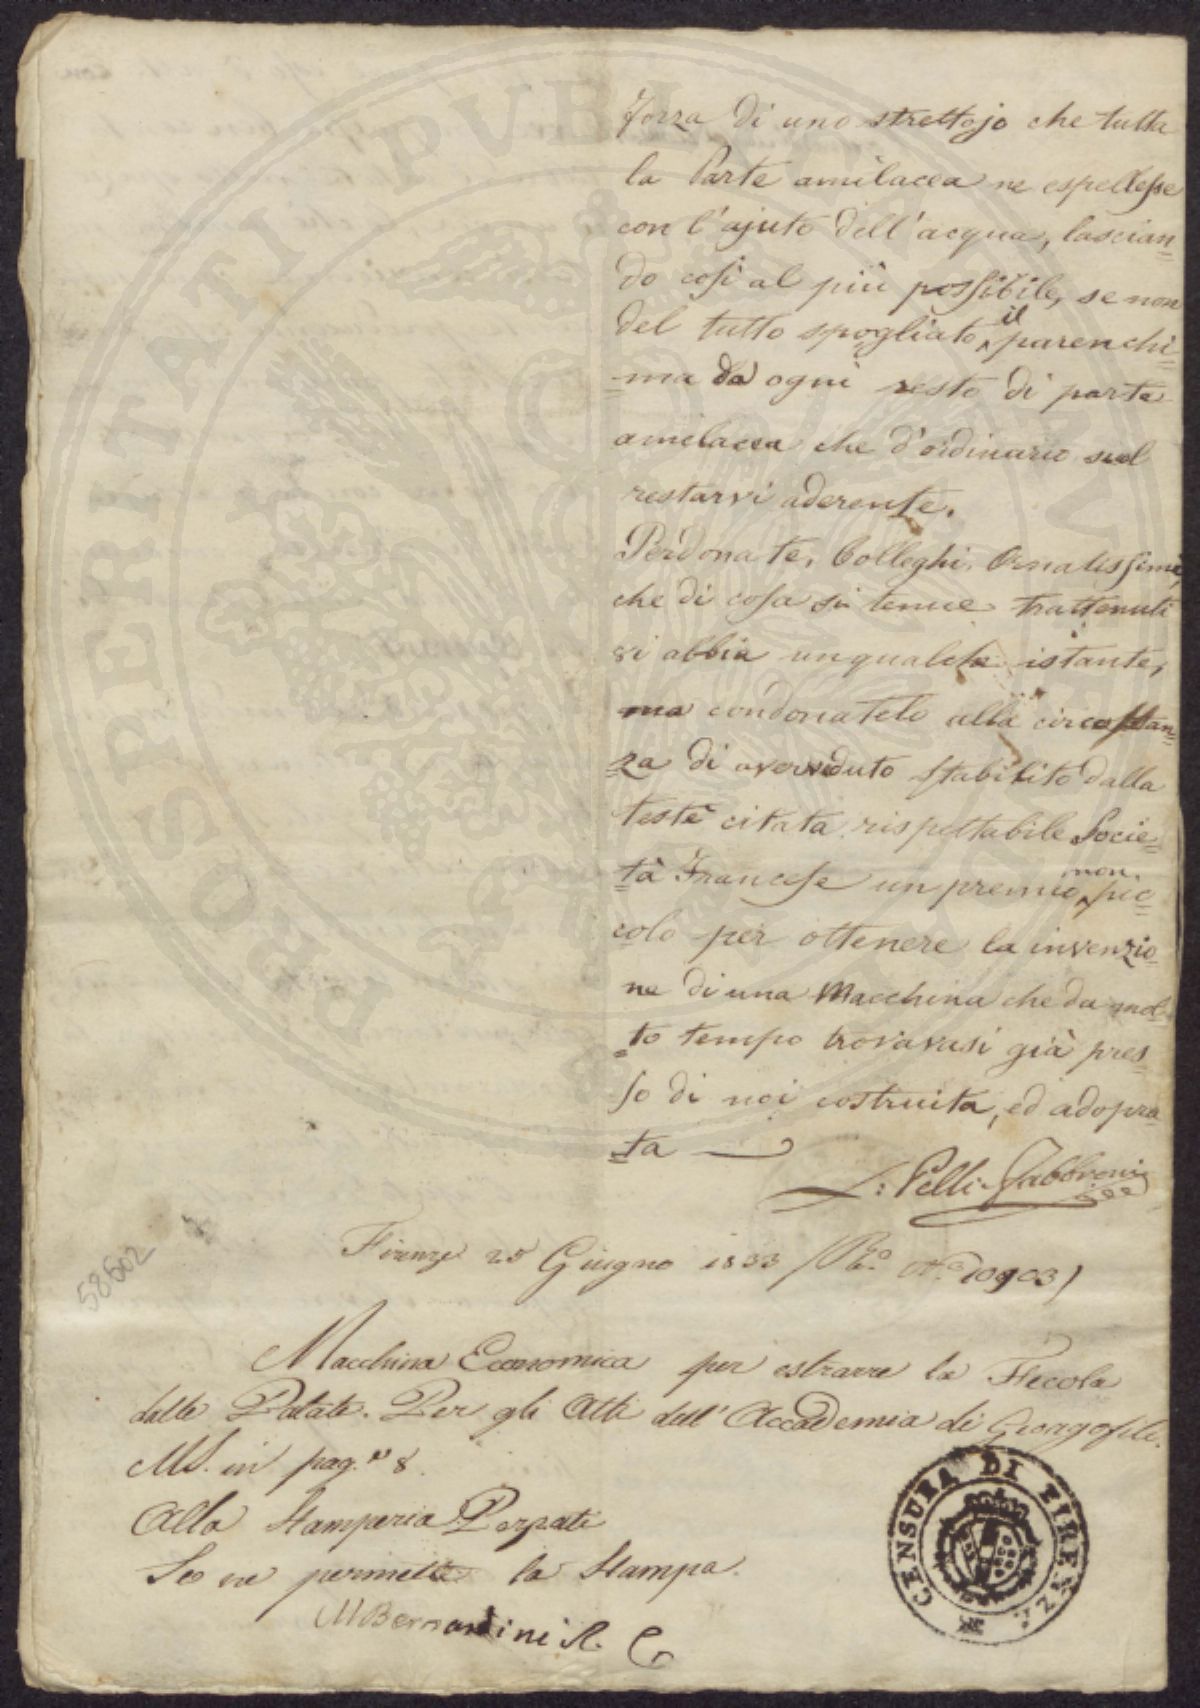 forza di uno strettojo che tutta
la Parte amilacea ne espellesse
con l'ajuto dell'acqua, lascian=
do così al più possibile, se non
del tutto spogliato il parenchi=
=ma da ogni resto di parte
amilacea che d'ordinario suol
restarvi aderente.
Perdonate, Colleghi Ornatissimi,
che di cosa sì tenue trattenuti
vi abbia unqualche istante,
ma condonatelo alla circostan=
=za di aver veduto stabilito dalla
testè citata rispettabile Socie=
=tà Francese un premio non pic=
colo per ottenere la invenzio=
ne di una Macchina che da mol=
=to tempo trovavasi già pres=
so di noi costruita, ed adopra=
=ta
L: Pelli-Fabbroni
Firenze 25 Giugno 1833 (Rº. Nº 10903)
58602
Macchina Economica per estrarre la Fecola
dalle Patate. Per gli Atti dell'Accademia di Georgofili.
MS. in pag.e 8.
Alla Stamperia Pezzati
Se ne permette la Stampa.
M Bernardini R. C.
CENSURA DI FIRENZE
PROSPERITATI PUBLICAE AUGENDAE